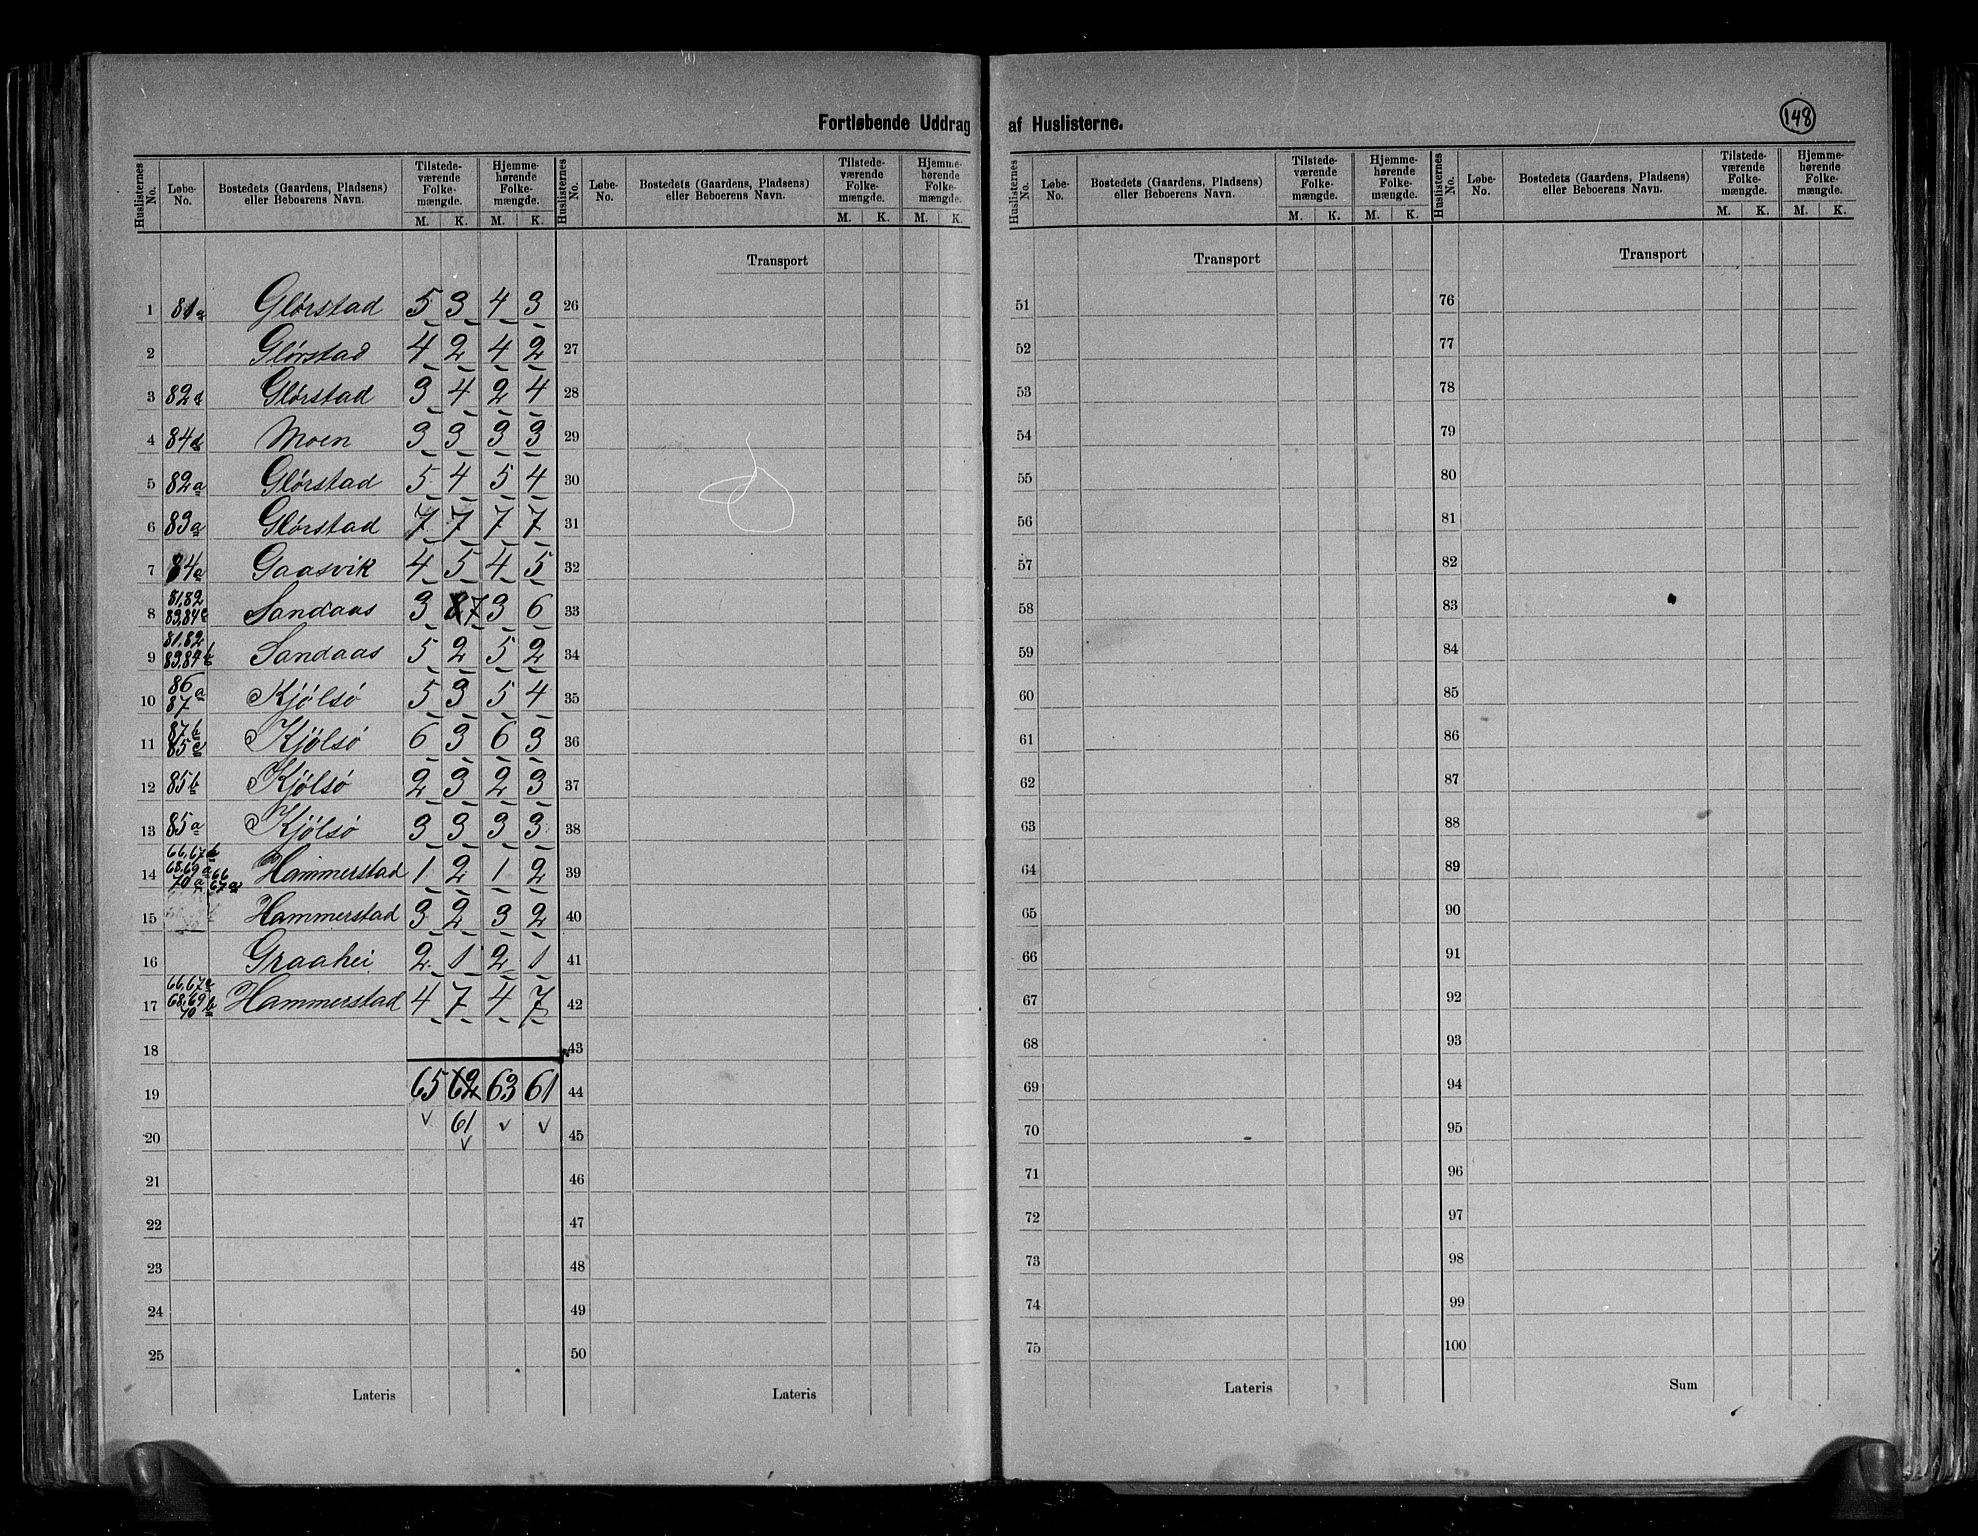 Fortløbende Uddrag af Huslisterne.
148
Huslisternes No. | Løbe-No. | Bostedets (Gaardens, Pladsens) eller Beboerens Navn. | Tilstedeværende Folkemængde. M. K. | Hjemmehørende Folkemængde. M. K.
Huslisternes No. | Løbe-No. | Bostedets (Gaardens, Pladsens) eller Beboerens Navn. | Tilstedeværende Folkemængde. M. K. | Hjemmehørende Folkemængde. M. K.
Huslisternes No. | Løbe-No. | Bostedets (Gaardens, Pladsens) eller Beboerens Navn. | Tilstedeværende Folkemængde. M. K. | Hjemmehørende Folkemængde. M. K.
Huslisternes No. | Løbe-No. | Bostedets (Gaardens, Pladsens) eller Beboerens Navn. | Tilstedeværende Folkemængde. M. K. | Hjemmehørende Folkemængde. M. K.
Transport
Transport
Transport
1 81a Glørstad 5 3 4 3 26 51 76
2 Glørstad 4 2 4 2 27 52 77
3 82 Glørstad 3 4 2 4 28 53 78
4 84 Moen 3 3 3 3 29 54 79
5 82a Glørstad 5 4 5 4 30 55 80
6 83a Glørstad 7 7 7 7 31 56 81
7 84a Gaasvik 4 5 4 5 32 57 82
8 81,82 83,84c Sandaas 3 7 3 6 33 58 83
9 81,82 83,84b Sandaas 5 2 5 2 34 59 84
10 86 87 a Kjølsø 5 3 5 4 35 60 85
11 87b 85c Kjølsø 6 3 6 3 36 61 86
12 85b Kjølsø 2 3 2 3 37 62 87
13 85a Kjølsø 3 3 3 3 38 63 88
14 66,67b 68,69a 70a 66 67a Hammerstad 1 2 1 2 39 64 89
15 Hammerstad 3 2 3 2 40 65 90
16 Graahei 2 1 2 1 41 66 91
17 66,67a 68,69 70 b Hammerstad 4 7 4 7 42 67 92
18 43 68 93
19 65 62 63 61 44 69 94
20 61 45 70 95
21 46 71 96
22 47 72 97
23 48 73 98
24 49 74 99
25 50 75 100
Lateris
Lateris
Lateris
Sum